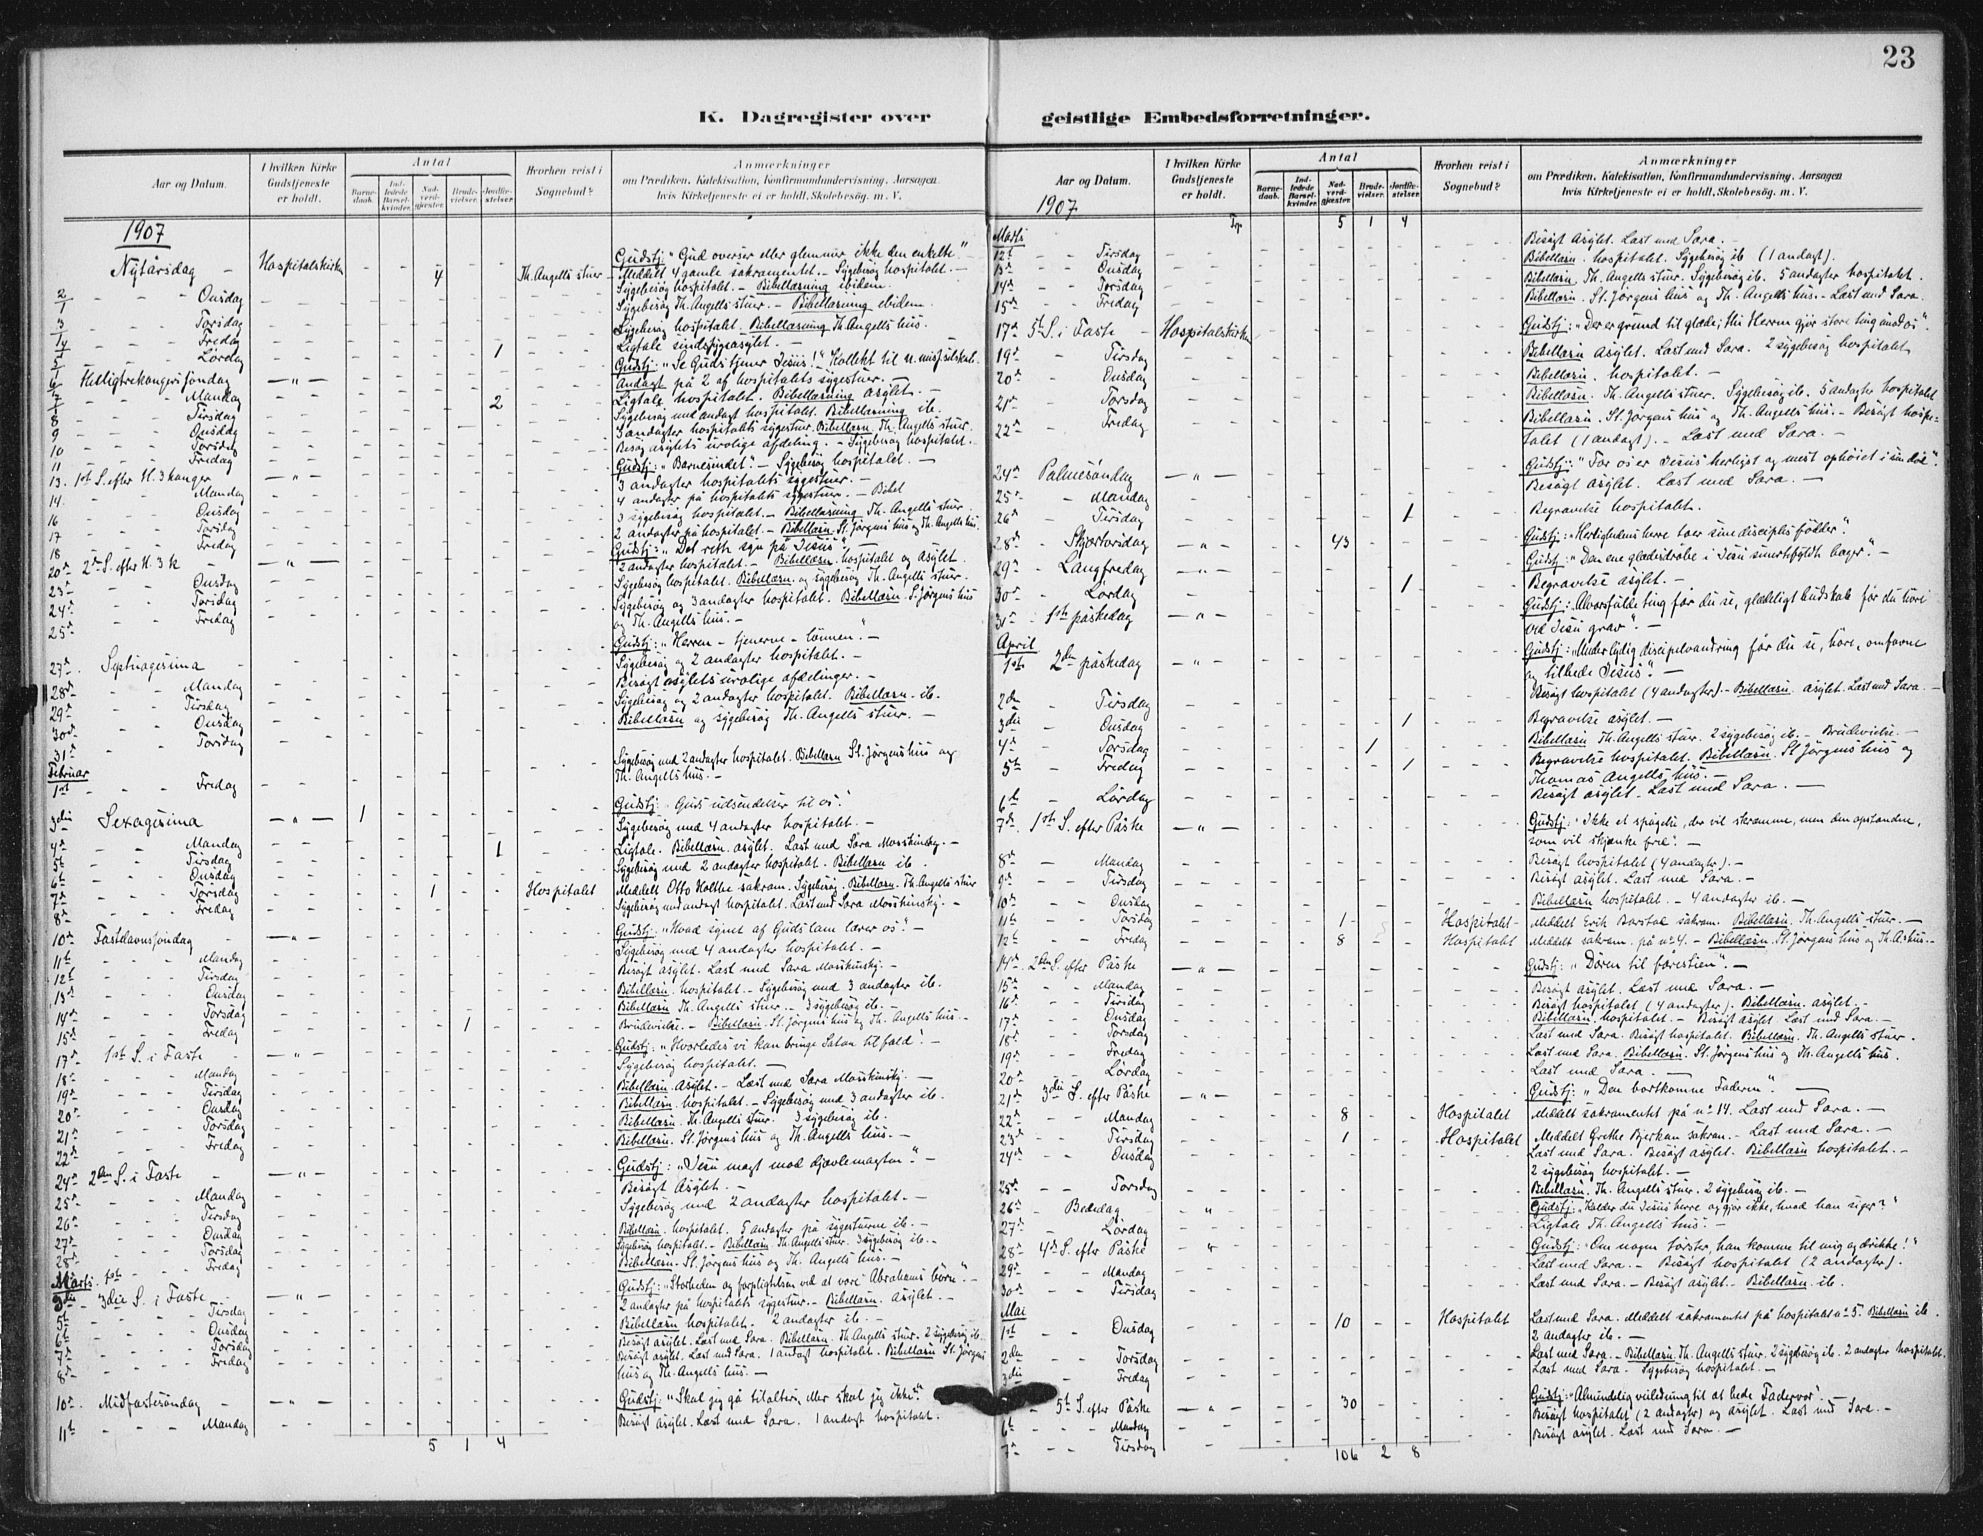 23
K. Dagregister over
geistlige Embedsforretninger.
Aar og Datum.
I hvilken Kirke Gudstjeneste er holdt.
Antal
Barnedaab.
Indledede Barselkvinder.
Nadverdgjæster.
Brudevielser.
Jordfæstelser.
Hvorhen reist i Sognebud?
Anmærkninger
om Prædiken, Katekisation, Konfirmandundervisning, Aarsagen
hvis Kirketjeneste ei er holdt, Skolebesøg. m. V.
1907
Gudstj: "Gud overser eller glemmer ikke den enkelte"
Nytårsdag - Hospitalskirken - - 4 - - Th. Angells stuer - Meddelt 4 gamle sakramentet. - Sygebesøg hospitalet. -
2/1 - - Onsdag Sygebesøg hospitalet. - Bibellæsning ibidem.
3/1 - - Torsdag Sygebesøg Th. Angells stuer. - Bibellæsning ibidem.
4 - - Fredag Sygebesøg hospitalet. Bibellæsning Th. Angells hus.
5 - - Lørdag 1 Ligtale sindssygeasylet. -
6 Helligtrekongerssøndag - " - Gudstj: "Se Guds tjener Jesus!"
Andagt på 2 af hospitalets sygestuer. -
7 - - Mandag 2 Ligtale hospitalet. Bibellæsning asylet. -
8 - - Tirsdag Sygebesøg med andagt hospitalet. Bibellæsning ib.
9 - - Onsdag 3 andagter hospitalets sygestuer. Bibellæsn. Th. Angells stuer.
10 - - Torsdag Besøg asylets urolige afdeling. - Sygebesøg hospitalet.
11 - - Fredag
13. 1ste S. efter H. 3 konger - " - Gudstj: "Barnesindet". - Sygebesøg hospitalet. -
14. - - Mandag 3 andagter hospitalets sygestuer. -
16 - - Onsdag 4 andagter på hospitalets sygestuer. - Bibel
17 - - Torsdag 3 sygebesøg hospitalet. - Bibellæsning Th. Angells stuer
18 - - Fredag 2 andagter på hospitalet. - Bibellæsn. St. Jørgens hus og Th. Angells hus
20de 2den S. efter H. 3 k - " - Gudstj: "Det rette syn på Jesus". -
2 andagter hospitalet. - Bibellæsn. hospitalet og asylet.
23de - - Onsdag Sygebesøg hospitalet. Bibellæsn. og sygebesøg Th. Angells stuer.
24de - - Torsdag Sygebesøg og 3 andagter hospitalet. Bibellæsn. St. Jørgens hus
25de - - Fredag og Th. Angells hus. -
27de Septuagesima - Gudstj: "Herren - tjenerne - lønnen". -
28de - - Mandag Sygebesøg og 2 andagter hospitalet. -
29de - - Tirsdag Besøgt asylets urolige afdelinger. -
30de - - Onsdag Sygebesøg og 2 andagter hospitalet. Bibellæsn. ib.
31te - - Torsdag Bibellæsn og sygebesøg Th. Angells stuer. -
Februar
1ste - - Fredag Sygebesøg med 2 andagter hospitalet. Bibellæsn St. Jørgens hus og
Th. Angells hus. -
3die Sexagesima - " - 1 Gudstj: "Guds udsendelser til os".
4de - - Mandag 1 Sygebesøg med 4 andagter hospitalet. -
5te - - Tirsdag Ligtale. Bibellæsn. asylet. Læst med Sara Mosskinsky. -
6te - - Onsdag Sygebesøg med 2 andagter hospitalet. Bibellæsn ib.
7de - - Torsdag 1 Hospitalet Meddelt Otto Holthe sakram. Sygebesøg. Bibellæsn. Th. Angells stuer
8de - - Fredag Sygebesøg med andagt hospitalet. Læst med Sara Mosskinsky -
10de Fastelavnssøndag - " - Gudstj: "Hvad synet af Guds lam lærer os". -
11te - - Mandag Sygebesøg med 4 andagter hospitalet. -
12te - - Tirsdag Besøgt asylet. Læst med Sara Mosskinsky. -
13de - - Onsdag Bibellæsn. hospitalet. - Sygebesøg med 3 andagter ib.
14de - - Torsdag Bibellæsn Th. Angells stuer. - 3 sygebesøg ib. -
15de - - Fredag 1 Brudevielse. - Bibellæsn. St. Jørgens hus og Th. Angells hus. -
17de 1ste S. i Faste - " - Gudstj: "Hvorledes vi kan bringe Satan til fald". -
18de - - Mandag Sygebesøg hospitalet. -
19de - - Tirsdag Bibellæsn asylet. - Læst med Sara Mosskinsky. -
20de - - Onsdag Bibellæsn. hospitalet. - Sygebesøg med 3 andagter ib.
21de - - Torsdag Bibellæsn. Th. Angells stuer. 3 sygebesøg ib. -
22de - - Fredag Bibellæsn. St. Jørgens hus og Th. Angells hus. -
24de 2den S. i Faste - " - Gudstj: "Jesu magt mod djævlemagten". -
Besøgt Asylet. -
25de - - Mandag Sygebesøg med 2 andagter hospitalet. -
26de - - Tirsdag Bibellæsn. hospitalet. 5 andagter på sygestuerne ib. -
27de - - Onsdag Sygebesøg hospitalet. - Bibellæsn. Th. Angells stuer. 3 sygebesøg ib. -
28de - - Torsdag Bibellæsn. St. Jørgens hus og Th. Angells hus. -
Marts 1ste - - Fredag
3die 3die S. i Faste - " - Gudstj: "Storheden og forpligtelsen ved at være Abrahams børn". -
5te - - Tirsdag 2 andagter på hospitalets sygestuer. - Bibellæsn. Asylet. -
6te - - Onsdag Bibellæsn hospitalet. 2 andagter ib. -
7de - - Torsdag Besøgt asylet. Læst med Sara. Bibellæsn. Th. Angells stuer. 2 sygebesøg ib.
8de - - Fredag Besøgt asylet. Læst med Sara. 1 andagt hospitalet. Bibellæsn St. Jørgens
hus og Th. Angells hus. -
10de Midfastesøndag - " - Gudstj: "Skal jeg gå til alters, eller skal jeg ikke?".
11te - - Mandag Besøgt asylet. Læst med Sara. 1 andagt hospitalet.
5 1 4
Aar og Datum.
I hvilken Kirke Gudstjeneste er holdt.
Antal
Barnedaab.
Indledede Barselkvinder.
Nadverdgjæster.
Brudevielser.
Jordfæstelser.
Hvorhen reist i Sognebud?
Anmærkninger
om Prædiken, Katekisation, Konfirmandundervisning, Aarsagen
hvis Kirketjeneste ei er holdt, Skolebesøg. m. V.
1907
Tr. 5 1 4
Marts
12te - - Tirsdag Besøgt Asylet. Læst med Sara. -
13de - - Onsdag Bibellæsn. hospitalet. Sygebesøg ib (1 andagt).
14de - - Torsdag Bibellæsn Th. Angells stuer. Sygebesøg ib. 5 andagter hospitalet.
15de - - Fredag Bibellæsn. St. Jørgens hus og Th. Angells hus. - Læst med Sara.
17de 5te S. i Faste - Hospitalskirken Gudstj: "Der er grund til glæde; thi Herren gjør store ting mod os".
19de - Tirsdag Bibellæsn Asylet. Læst med Sara. 2 sygebesøg hospitalet
20de - Onsdag Bibellæsn. hospitalet. -
21de - Torsdag Bibellæsn. Th. Angells stuer. Sygebesøg ib. 5 andagter hospitalet
22de - Fredag Bibellæsn. St. Jørgens hus og Th. Angells hus. - Besøgt hospi-
talet (1 andagt). - Læst med Sara. -
24de Palmesøndag - " - Gudstj: "For os er Jesus herligst og mest ophøiet i sin død".
25de - Mandag Besøgt asylet. Læst med Sara. -
26de - Tirsdag 1 Begravelse hospitalet.
28de Skjærtorsdag - " - 43 Gudstj: "Herlighedens herre toer sine disciples fødder".
29de Langfredag - " - Gudstj: "Den ene glædesdråbe i Jesu smertefyldte bæger". -
30de - Lørdag 1 Begravelse asylet. -
31te 1ste påskedag - " - Gudstj: "Alvorsfulde ting får du se, glædeligt budskab får du høre
ved Jesu grav". -
April
1ste 2den påskedag - " - Gudstj: "Under lydig discipelvandring får du se, høre, omfavne
og tilbede Jesus". -
2den - Tirsdag Besøgt hospitalet (4 andagter). - Bibellæsn. asylet. Læst med Sara. -
3die - Onsdag 1 Begravelse asylet. -
4de - Torsdag 1 Bibellæsn Th. Angells stuer. 2 sygebesøg ib. - Brudevielse. -
5te - Fredag 1 Begravelse hospitalet. Bibellæsn. St. Jørgens hus og
Thomas Angells hus. -
6te - Lørdag Besøgt asylet. Læst med Sara. -
7de 1ste S. efter Påske - " - Gudstj: "Ikke et spøgelse, der vil skræmme, men den opstandne,
som vil skjænke fred". -
8de - Mandag Besøgt hospitalet (4 andagtr). -
9de - Tirsdag Besøgt asylet. Læst med Sara. -
10de - Onsdag Bibellæsn hospitalet. - 4 andagter ib. -
11te - Torsdag 1 Hospitalet - Meddelt Erik Barstad sakram. Bibellæsn. Th. Angells stuer. -
12te - Fredag 8 Hospitalet Meddelt sakram. på no 4. - Bibellæsn. St. Jørgens hus og Th. A. hus. -
14de 2den S. efter Påske - " - Gudstj: "Døren til fårestien". -
15de - Mandag Besøgt asylet. Læst med Sara. -
16de - Tirsdag Besøgt hospitalet (4 andagter). Bibellæsn. asylet. -
17de - Onsdag Bibellæsn. hospitalet. - Besøgt asylet Læst med Sara. -
18de - Torsdag Læst med Sara. Besøgt hospitalet. Bibellæsn. Th. Angells stuer.
19de - Fredag Læst med Sara. Bibellæsn. St. Jørgens hus og Th. Angells hus.
20de - Lørdag Læst med Sara. -
21de 3die S. efter Påske - " - Gudstj: "Den bortkomne Faderen". -
22de - Mandag 8 Hospitalet Meddelt sakramentet på no 14. Læst med Sara. -
23de - Tirsdag 1 Hospitalet Meddelt Grethe Bjerkan sakram. - Læst med Sara. -
24de - Onsdag Læst med Sara. Besøgt asylet. Bibellæsn hospitalet. -
2 sygebesøg hospitalet. -
25de - Torsdag Bibellæsn. Th. Angells stuer. 2 sygebesøg ib. -
26de - Bededag " Gudstj: "Kalder du Jesus herre og gjør ikke, hvad han siger?"
27de - Lørdag Ligtale Th. Angells hus. -
28de 4de S. efter Påske " Gudstj: "Om nogen tørster, han komme til mig og drikke!"
29de - Mandag Læst med Sara. - Besøgt hospitalet (2 andagter).
30de - Tirsdag Læst med Sara. - Besøgt asylet. - Bibellæsn ib.
Mai
1ste - Onsdag 10 Hospitalet Læst med Sara. Meddelt sakramentet på hospitalet no 5. Bibellæsn ib.
2 andagter ib. -
2den - Torsdag Læst med Sara. - Bibellæsn. Th. Angells stuer. 2 sygebesøg ib. 2 andagter hospitalet.
3die - Fredag Læst med Sara. Sygebesøg hospitalet. -
5te S. efter Påske - " - 30 Gudstj: "Almindelig veiledning til at bede Fadervor". -
6te - Mandag Besøgt hospitalet (2 andagter) og asylet. Læst med Sara. -
7de - Tirsdag Besøgt asylet. Læst med Sara. -
106 2 8